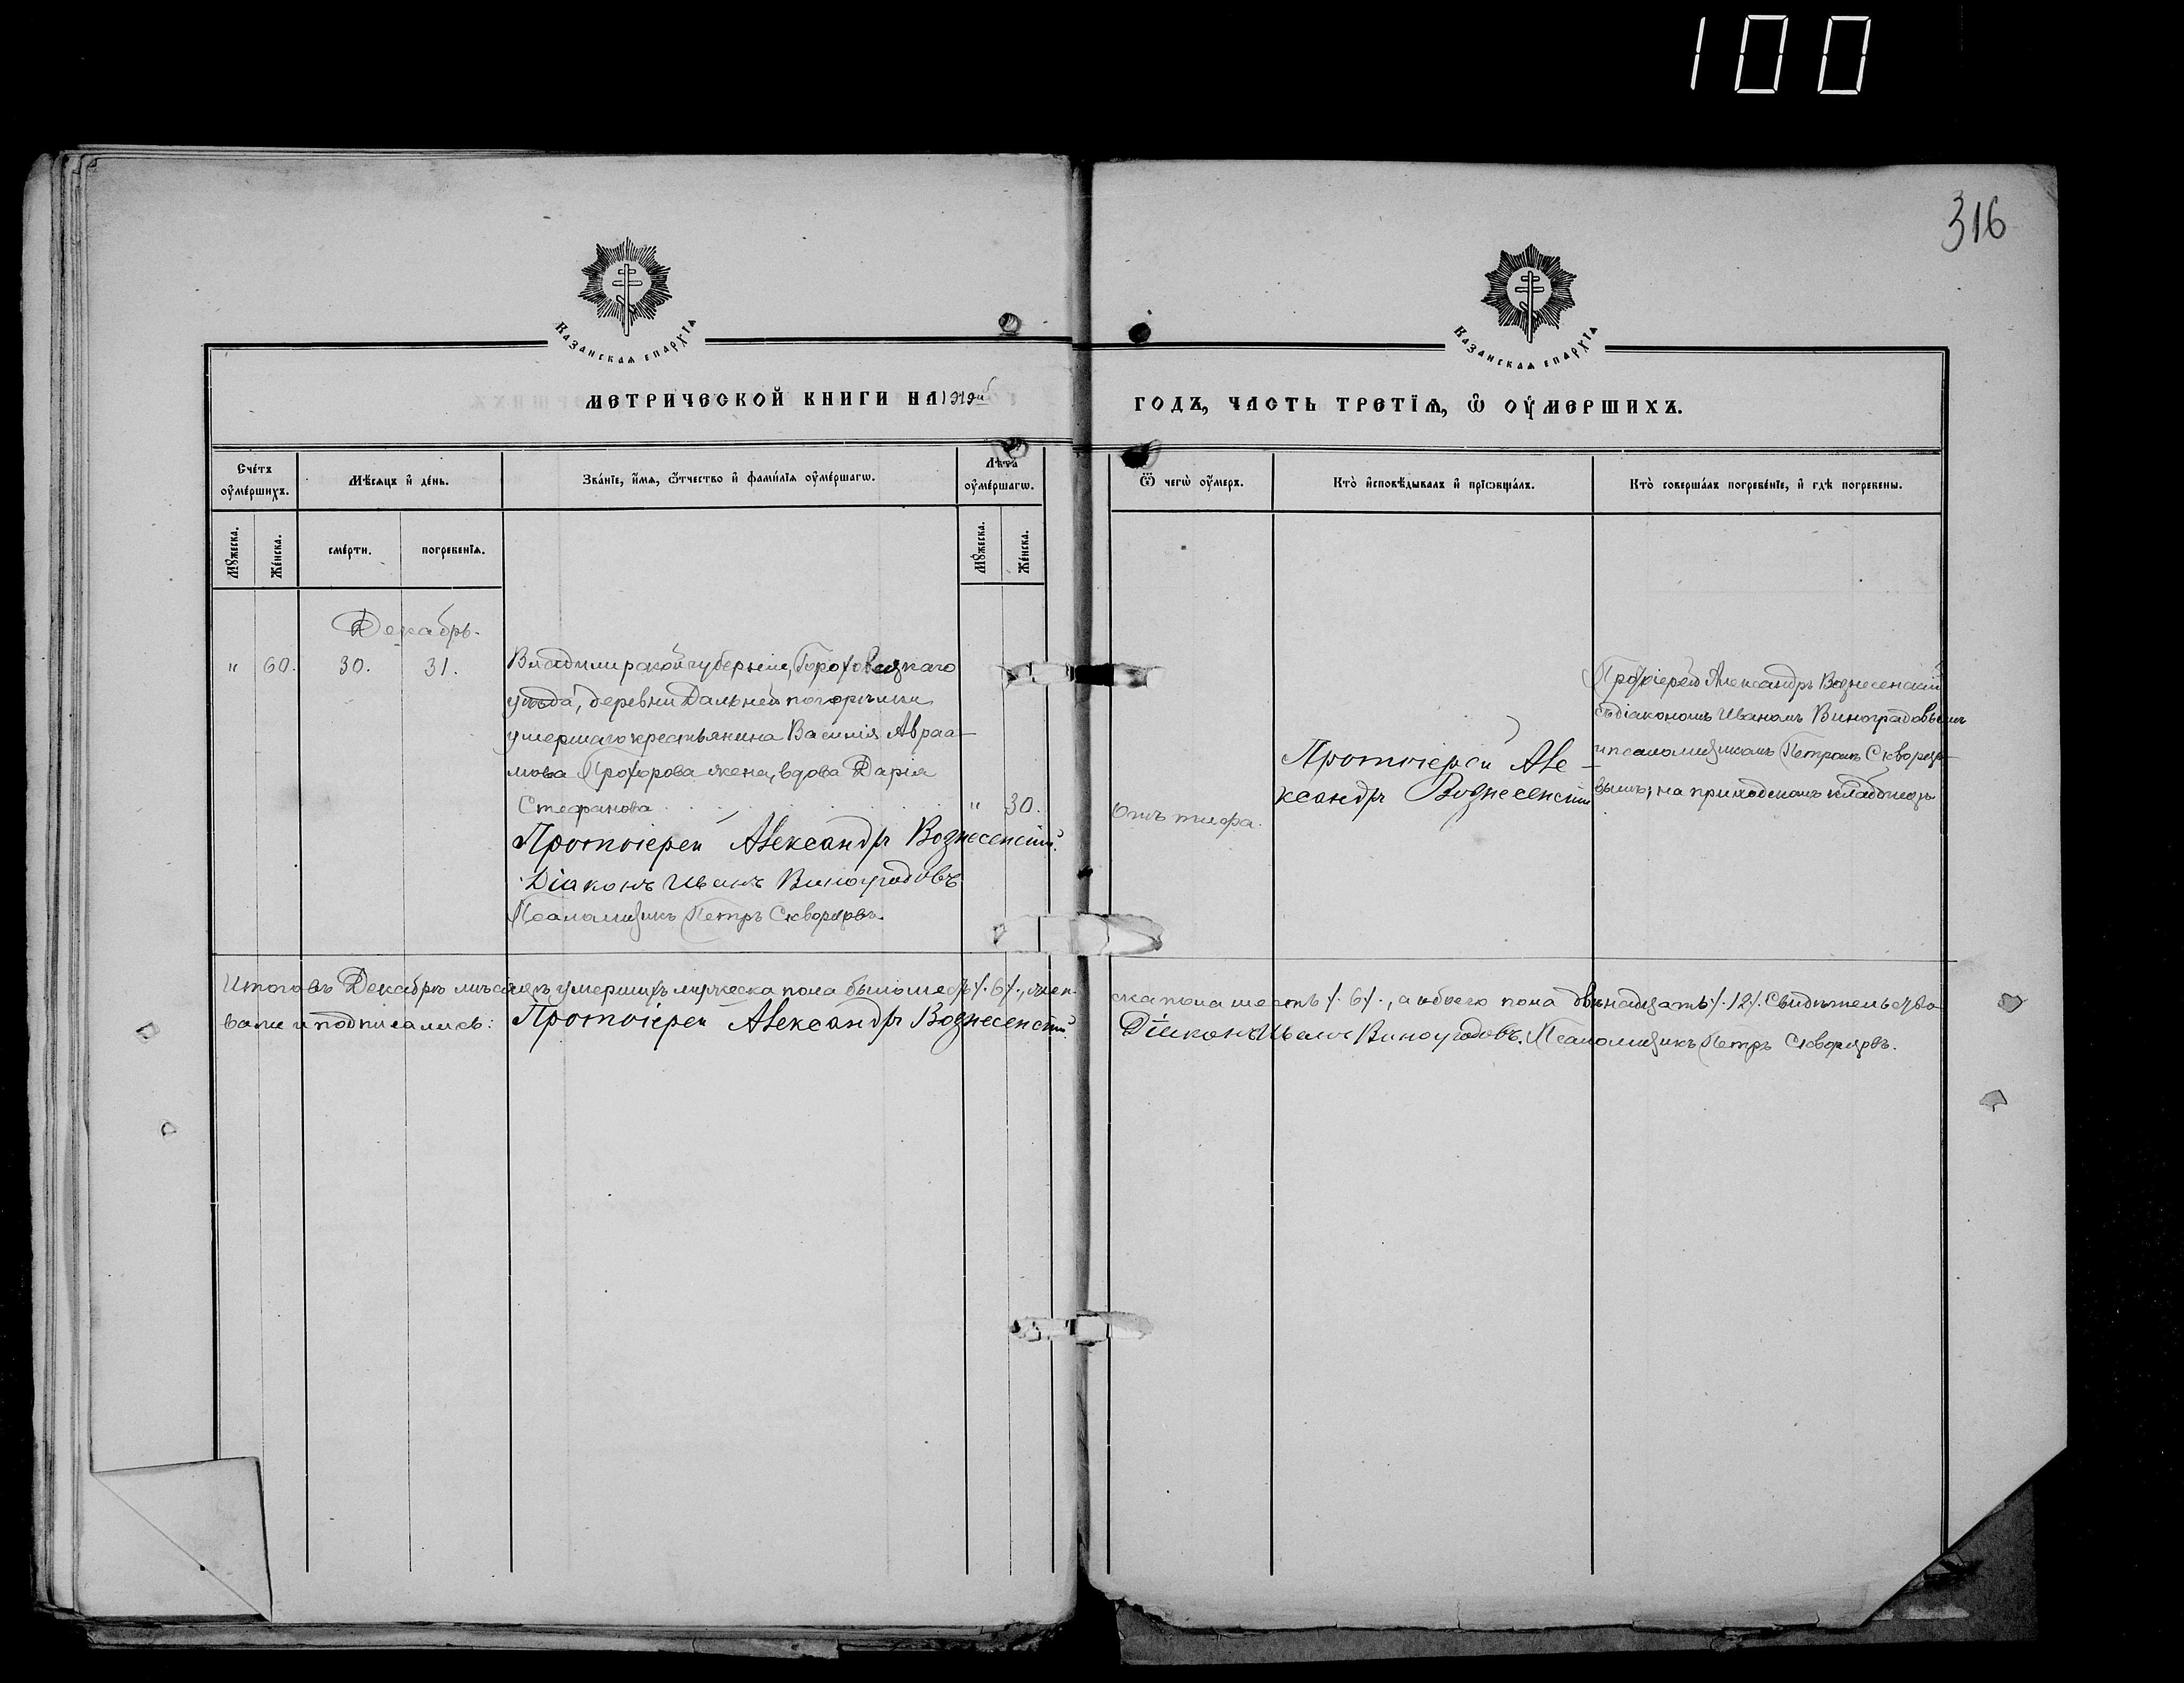 100
316
Казанскаѧ епархїѧ
Казанскаѧ епархїѧ
МЕТРИЧЕСКОЙ КНИГИ НА 1919й
ГОДЪ, ЧАСТЬ ТРЕТЇѦ, Ѽ ОУ҆МЕРШИХЪ.
Сче́тъ оу҆ме́ршихъ.
Мѣ́сѧцъ и҆ де́нь.
Зва́нїе, и҆́мѧ, ѻ҆́тчество и҆ фами́лїѧ оу҆ме́ршагѡ.
Лѣ́та оу҆ме́ршагѡ.
Ѿ чегѡ̀ оу҆́меръ.
Кто̀ и҆сповѣ́дывалъ и҆ прїѡбща́лъ.
Кто̀ соверша́лъ погребе́нїе, и҆ гдѣ̀ погребены.
Мꙋ́жеска.
Же́нска.
сме́рти.
погребенїѧ.
Мꙋ́жеска.
Же́нска.
Декабрь.
" 60. 30. 31.
Владимирской губерніи, Гороховецкаго
уѣзда, деревни Дальней
умершаго крестьянина Василія Авраа-
мова Прохорова жена, вдова Дарія
Стефанова. " 30.
Протоіерей Александръ Вознесенскій.
Діаконъ Иванъ Виноградовъ.
Псаломщикъ Петръ Скворцовъ.
Отъ тифа.
Протоіерей Але-
ксандръ Вознесенскій
Протоіерей Александръ Вознесенскій
съ діакономъ Иваномъ Виноградовымъ
и псаломщикомъ Петромъ Скворцо-
вымъ; на приходскомъ кладбищѣ
Итого въ Декабрѣ мѣсяцѣ умершихъ мужеска пола было шесть /. 6 /., жен-
ска пола шесть /. 6 /., а обоего пола двѣнадцать /. 12 /. Свидѣтельство-
вали и подписались: Протоіерей Александръ Вознесенскій.
Діаконъ Иванъ Виноградовъ. Псаломщикъ Петръ Скворцовъ.